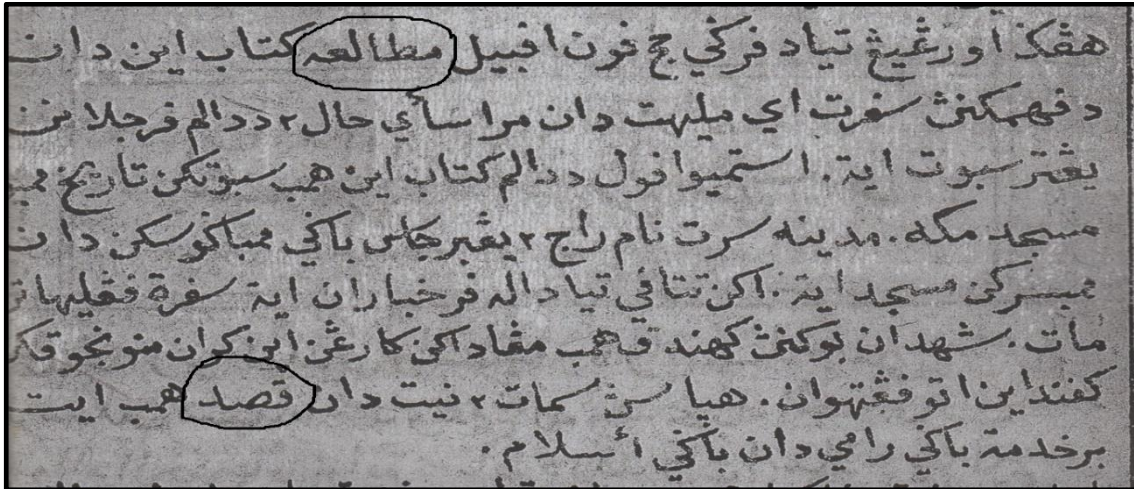 هڤڬ اورڠيڠ تياد ڤرݢي حج ڤون اڤبيل مطالعه کتاب اين دان
دفهمکنڽ سڤرت اي مليهت دان مراساٴي حال٢ ددالم ڤرجلانن
يڠترسبوت ايت. استميوا ڤول ددالم کتاب اين همب سبوتکن تاريخ ممب
مسجد مکه. مدينه سرت نام راج٢ يڠبرجاس باݢي ممباݢوسکن دان
ممبسرکن مسجد ايت. اکن تتاڤي تيادله ڤرخباران ايت سڤرة ڤڠليهاتن
مات. شهدان بوکنڽ کهندق همب مڠاداکن کارڠن اين کران منونجوقکن
کڤنداين اتو ڤڠتهوان. هياسڽ سمات٢ نيت دان قصد همب ايت
برخدمة باݢي رامي دان باݢي أسلام.